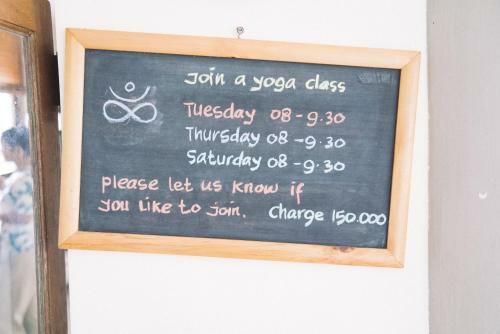 Join a yoga class
Tuesday 08-9.30
Thursday 08-9.30
Saturday 08-9.30
please let us know if
you like to join. charge 150.000